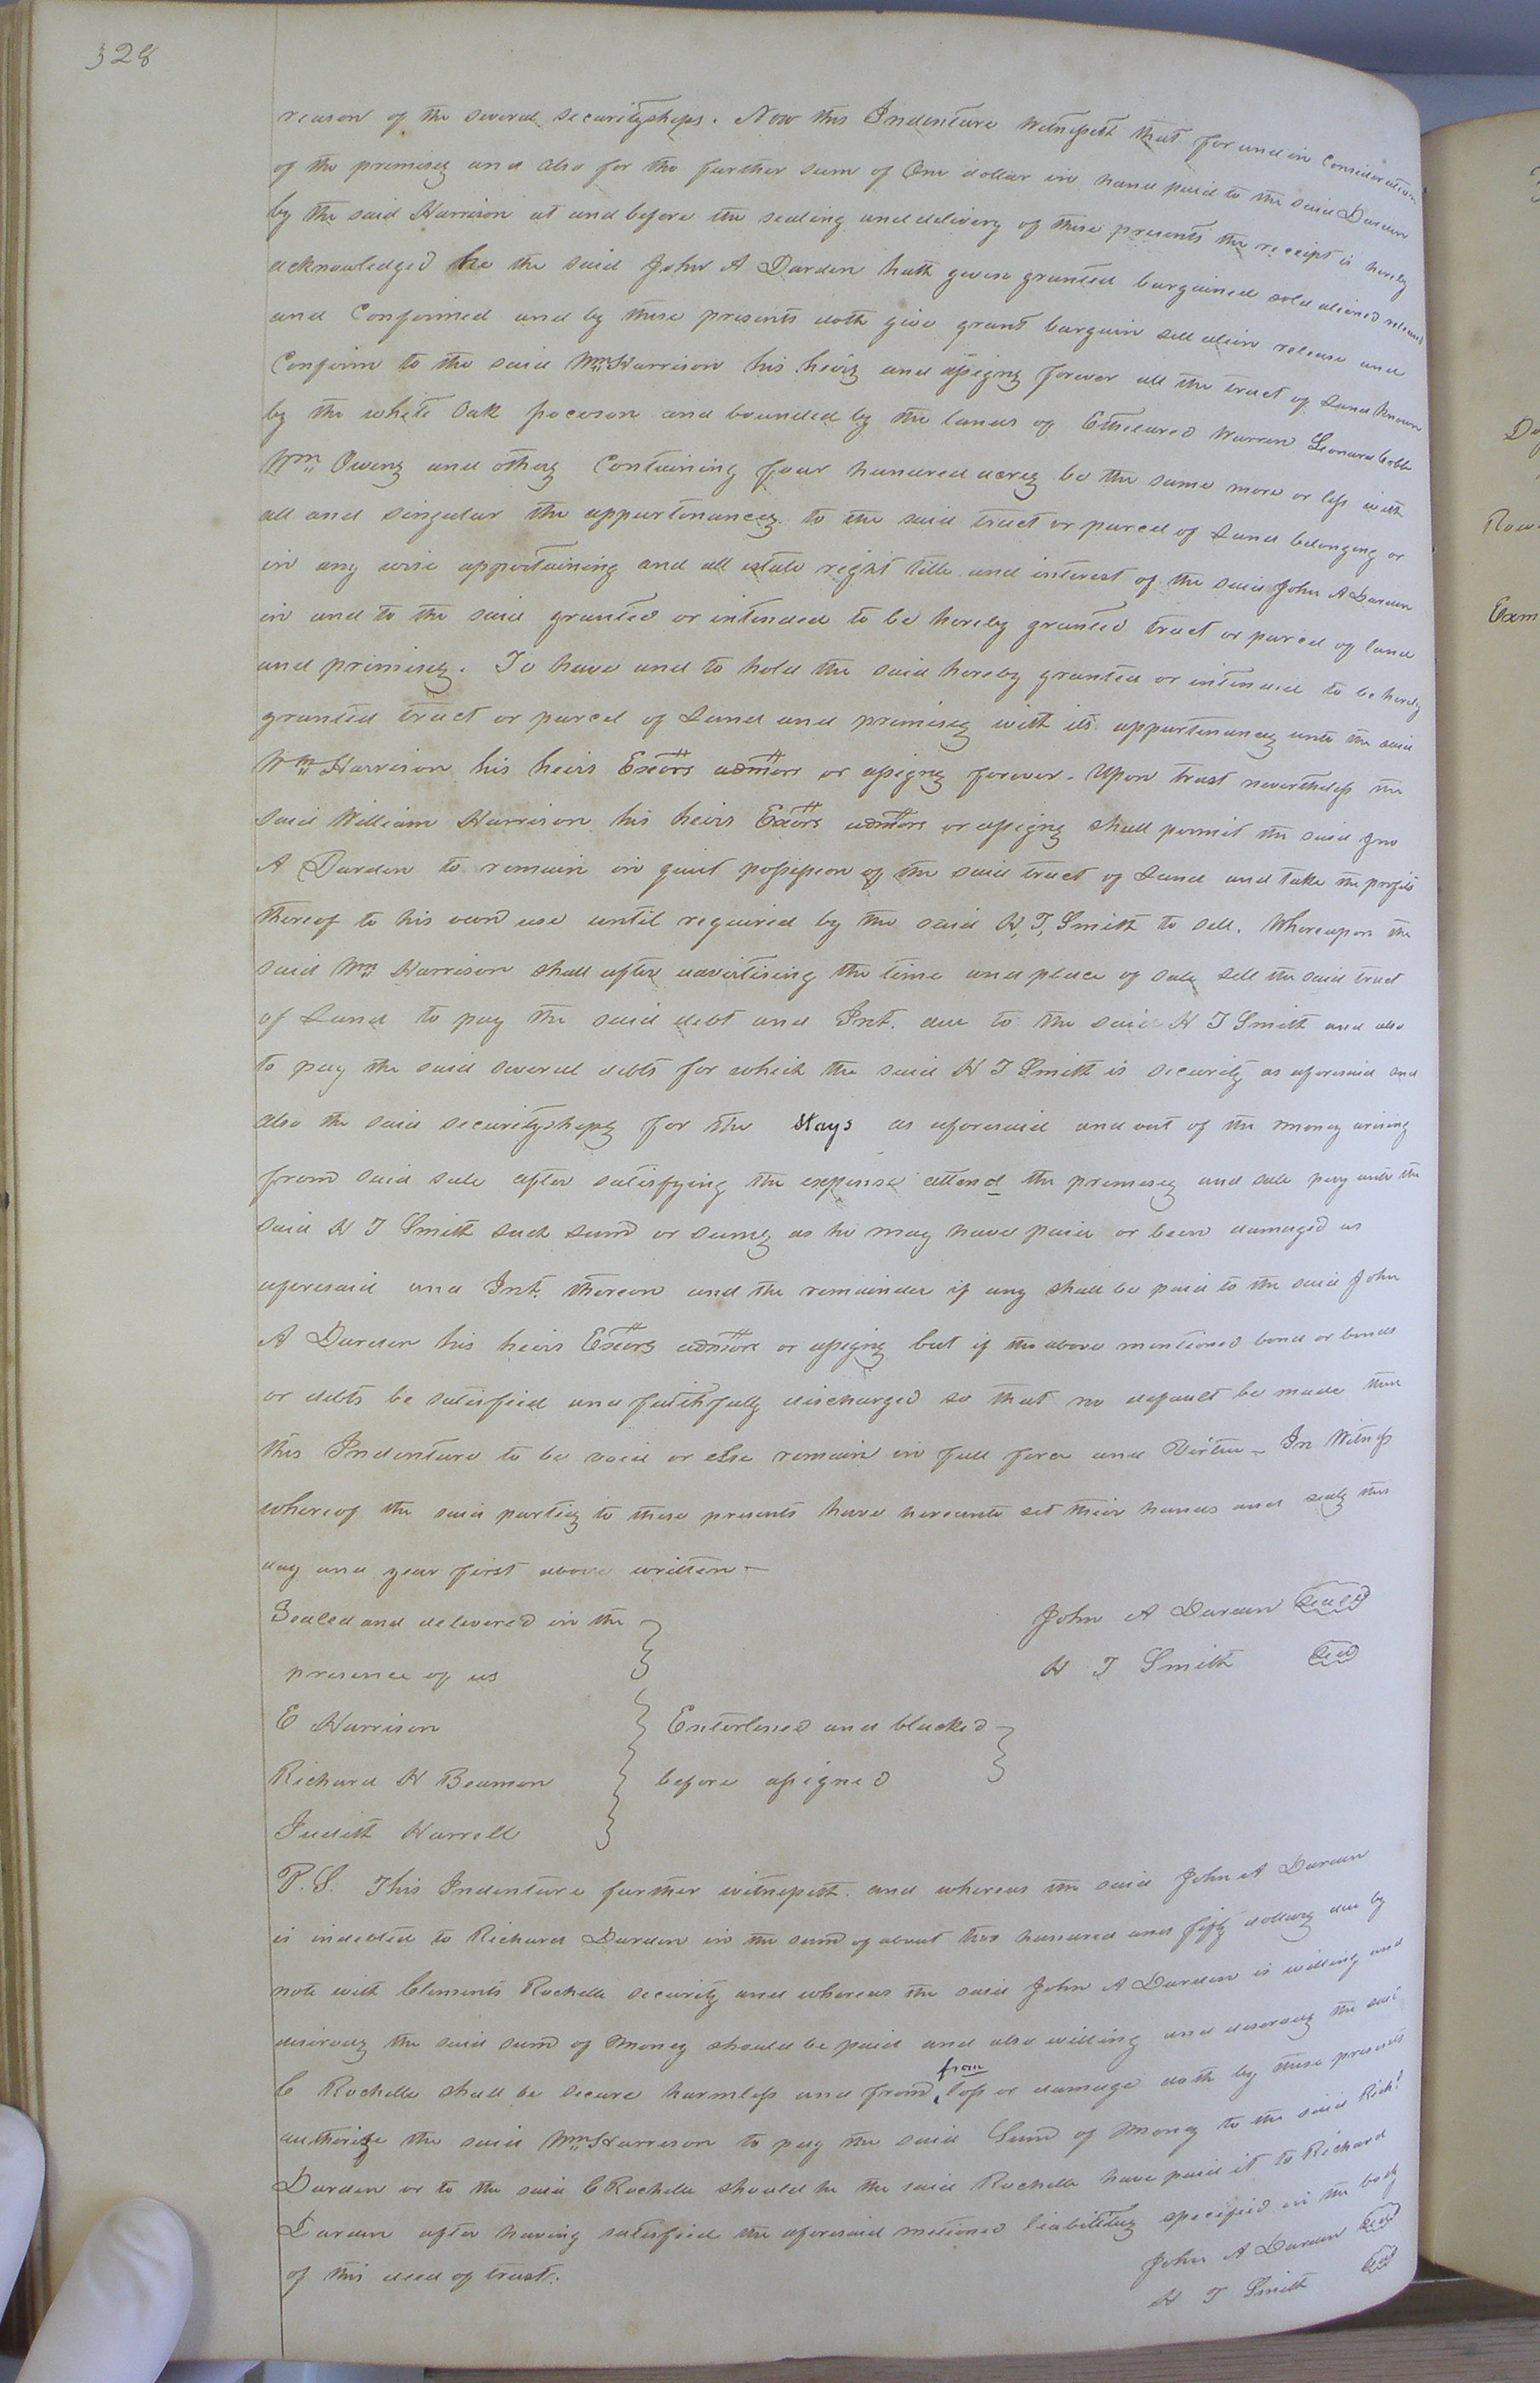 328
reason of the several securityships. Now this Indenture Witnesseth that for and in Consideration
of the premises and also for the further sum of One dollar in hand paid to the said Darden
by the said Harrison at and before the sealing and delivery of these presents the receipt is hereby
acknowledged he the said John A Darden hath given granted bargained sold aliened released
and Confirmed and by these presents doth give grant bargain sell alien release and
Confirm to the said Wm Harrison his heirs and assigns forever all the tract of Land known
by the white Oak pocoson and bounded by the lands of Etheldred Warren Leonard Cobb
Wm Owens and others Containing four hundred acres be the same more or less with
all and singular the appurtenances to the said tract or parcel of Land belonging or
in any wise appertaining and all estate right title and interest of the said John A Darden
in and to the said granted or intended to be hereby granted tract or parcel of land
and premises. To have and to hold the said hereby granted or intended to be hereby
granted tract or parcel of Land and premises with its appurtenances unto the said
Wm Harrison his heirs Exors admors or assigns forever. Upon trust nevertheless the
said William Harrison his heirs Exors admors or assigns shall permit the said Jno
A Darden to remain in quiet possession of the said tract of Land and take the profits
thereof to his own use until required by the said H, T, Smith to sell. Whereupon the
said Wm Harrison shall after advertising the time and place of sale sell the said tract
of Land to pay the said debt and Int. due to the said H T Smith and also
to pay the said several debts for which the said H T Smith is security as aforesaid and
also the said securityships for the Stays as aforesaid and out of the money arising
from said sale after satisfying the expense attend the premises and sale pay unto the
said H T Smith such sum or sums as he may have paid or been damaged as
aforesaid and Int. thereon and the remainder if any shall be paid to the said John
A Darden his heirs Exors admors or assigns but if the above mentioned bond or bonds
or debts be satisfied and faithfully discharged so that no default be made then
this Indenture to be void or else remain in full force and Virtue – In Witness
whereof the said parties to these presents have hereunto set their hands and seals the
day and year first above written –
Sealed and delivered in the
John A Darden Seal
presence of us
H T Smith Seal
E Harrison
Enterlined and blacked
Richard H Beamon
before assigned
Judith Harrell
P.S. This Indenture further witnesseth and whereas the said John A Darden
is indebted to Richard Darden in the sum of about two hundred and fifty dollars due by
note with Clements Rochelle security and whereas the said John A Darden is willing and
desirous the said sum of money should be paid and also willing and desirous the said
from
C Rochelle shall be secure harmless and from loss or damage doth by these presents
authorize the said Wm Harrison to pay the said Sum of money to the said Richd
Darden or to the said C Rochelle should he the said Rochelle have paid it to Richard
Darden after having satisfied the aforesaid metioned liabilities specified in the body
of this deed of trust.
John A Darden Seal
H T Smith Seal